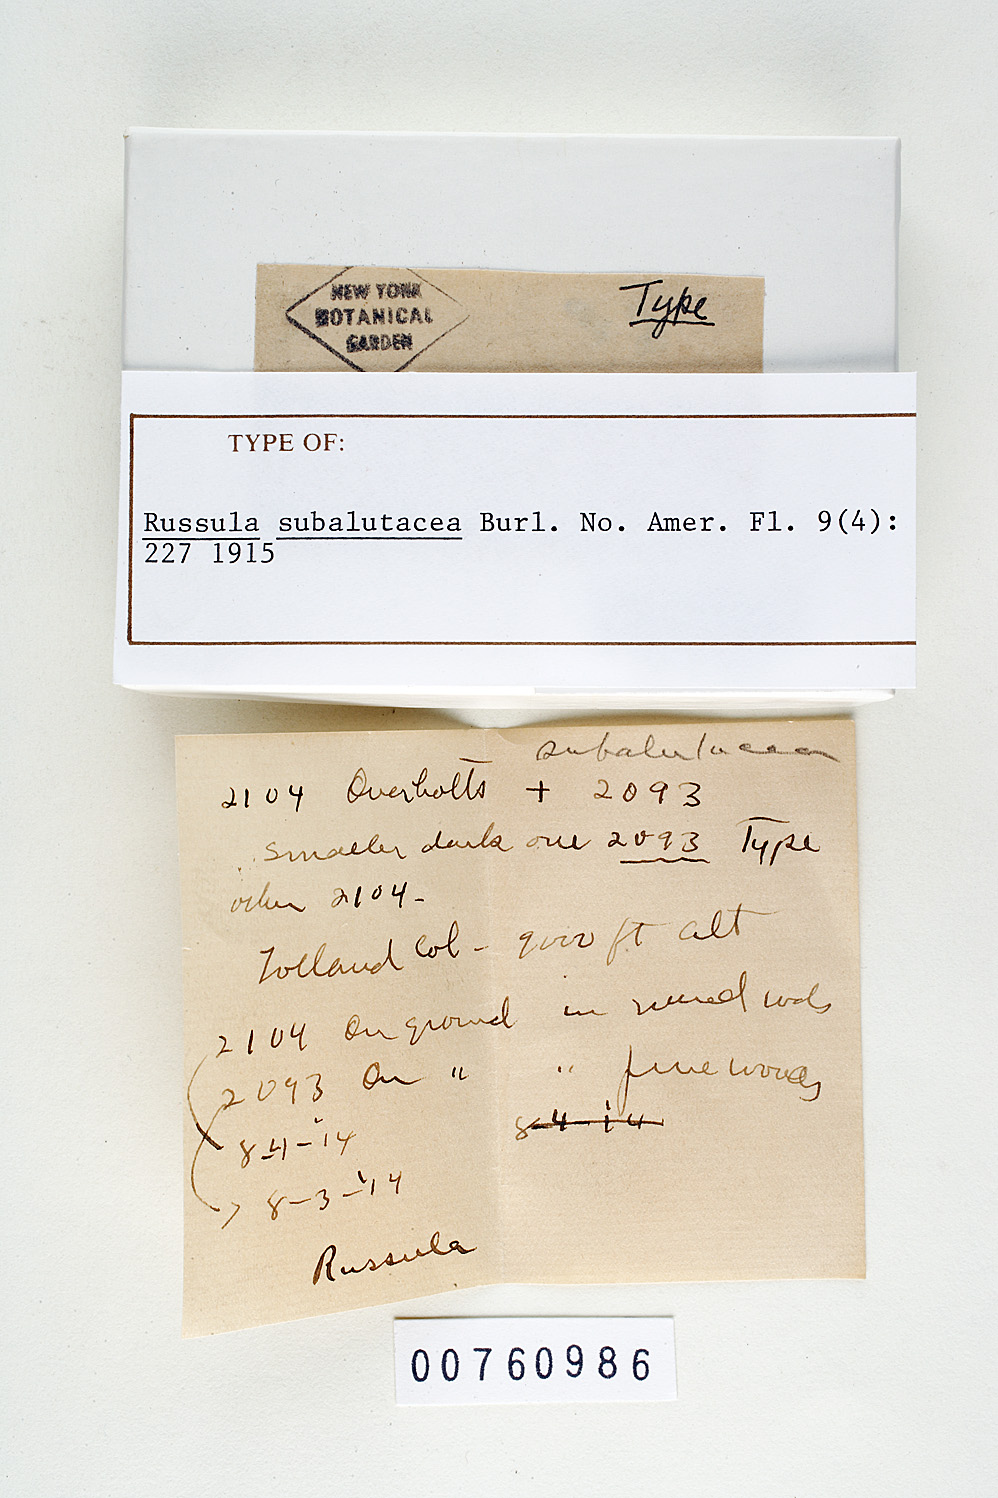 NEW YORK
BOTANICAL
GARDEN
Type
TYPE OF:
Russula subalutacea Burl. No. Amer. Fl. 9(4):
227 1915
subalutacea
2104 Overholts + 2093
smaller dark one 2093 Type
other 2104-
Tolland Col - 9000 ft alt
2104 On ground in mixed wds
2093 On " " pine woods
8-4-'14 8-4-'14
8-3-'14
Russula
00760986